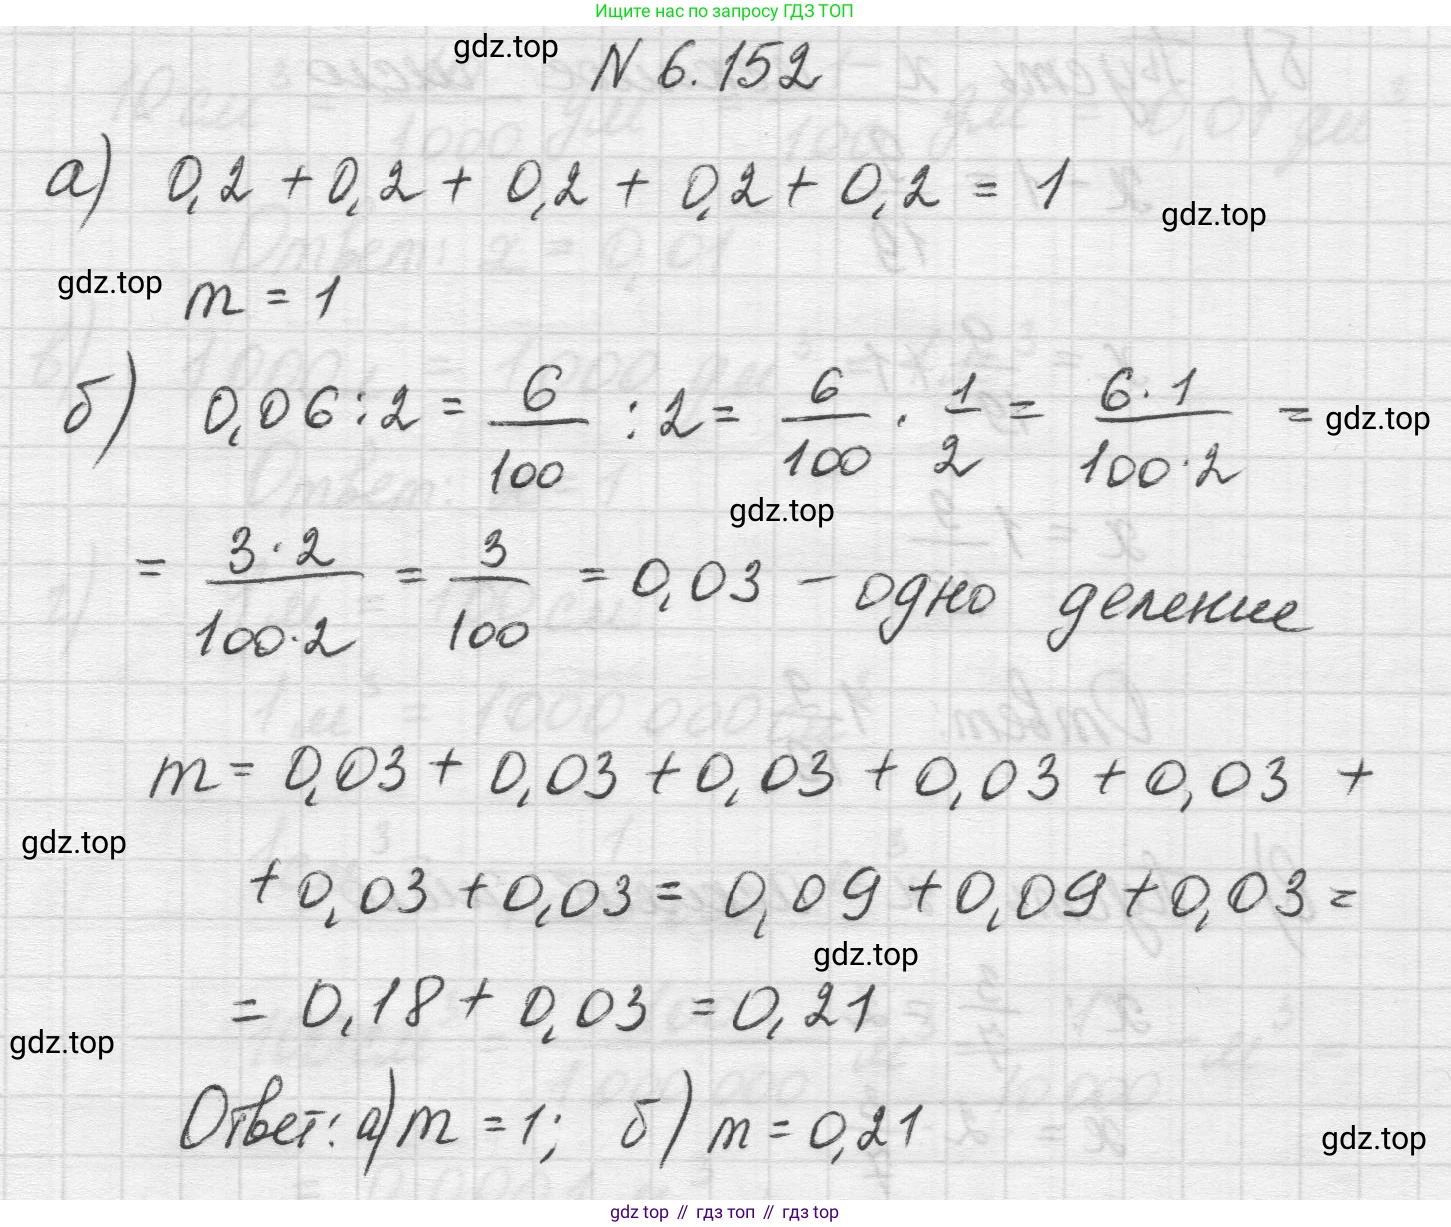 Ищите нас по запросу ГДЗ ТОП
gdz.top
N 6.152
а) 0,2 + 0,2 + 0,2 + 0,2 + 0,2 = 1
gdz.top
gdz.top
m = 1
б) 0,06 : 2 = 6/100 : 2 = 6/100 · 1/2 = 6·1/100·2 =
gdz.top
gdz.top
= 3·2/100·2 = 3/100 = 0,03 - одно деление
m = 0,03 + 0,03 + 0,03 + 0,03 + 0,03 +
gdz.top
+ 0,03 + 0,03 = 0,09 + 0,09 + 0,03 =
gdz.top
= 0,18 + 0,03 = 0,21
gdz.top
Ответ: а) m = 1; б) m = 0,21
gdz.top
gdz top // гдз топ // гдз top